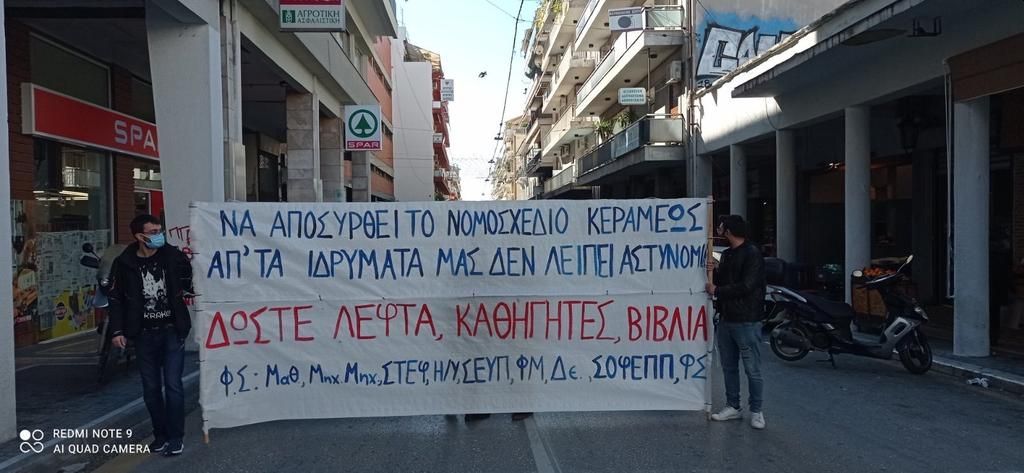 ΑΓΡΟΤΙΚΗ
ΑΣΦΑΛΙΣΤΙΚΗ
SPAR
SPA
ΝΑ ΑΠΟΣΥΡΘΕΙ ΤΟ ΝΟΜΟΣΧΕΔΙΟ ΚΕΡΑΜΕΩΣ
ΑΠ' ΤΑ ΙΔΡΥΜΑΤΑ ΜΑΣ ΔΕΝ ΛΕΙΠΕΙ ΑΣΤΥΝΟΜΙ
ΔΩΣΤΕ ΛΕΦΤΑ, ΚΑΘΗΓΗΤΕΣ, ΒΙΒΛΙΑ
ΦΣ: Μαθ, Μηχ Μηχ, ΣΤΕΦ, Η/Υ, ΣΕΥΠ, ΦΜ, Δε.., ΣΟΦΕΠΠ, ΦΣ
KRAKE
REDMI NOTE 9
AI QUAD CAMERA